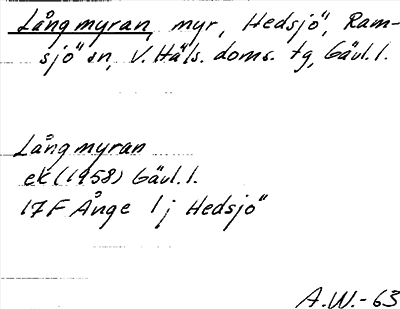 Långmyran, myr, Hedsjö, Ram-
sjö sn, V. Häls. doms. tg, Gävl. l.
Långmyran
ek (1958) Gävl. l.
17F Ånge 1 j Hedsjö
A.W.-63